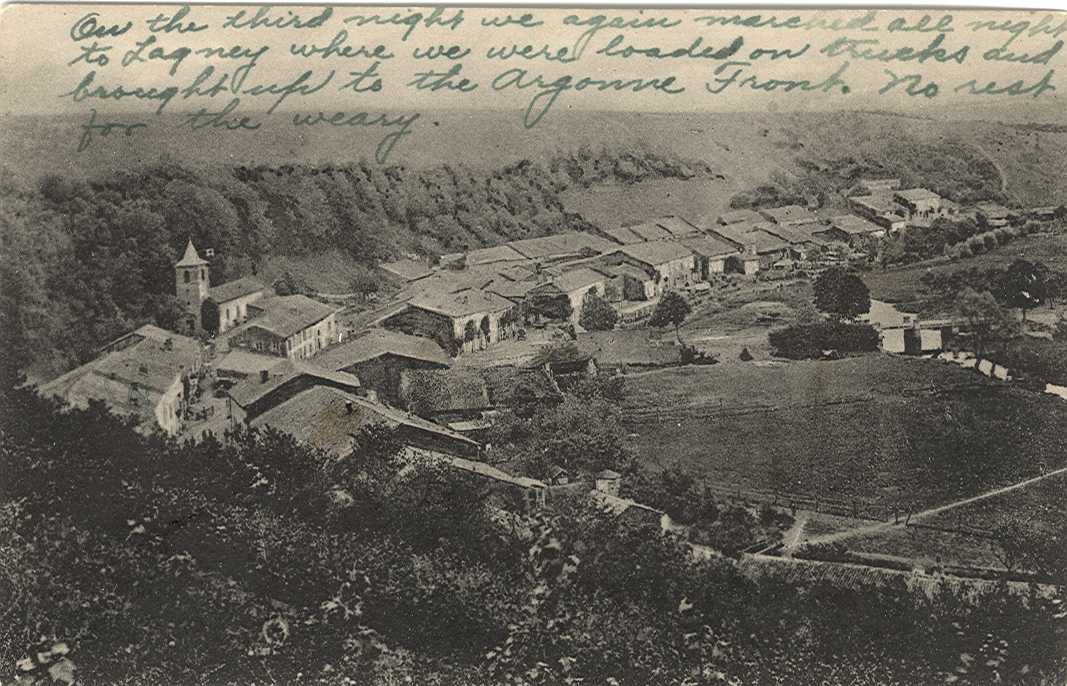 On the third night we again marched all night
to Lagney where we were loaded on trucks and
brought up to the Argonne Front. No rest
for the weary.